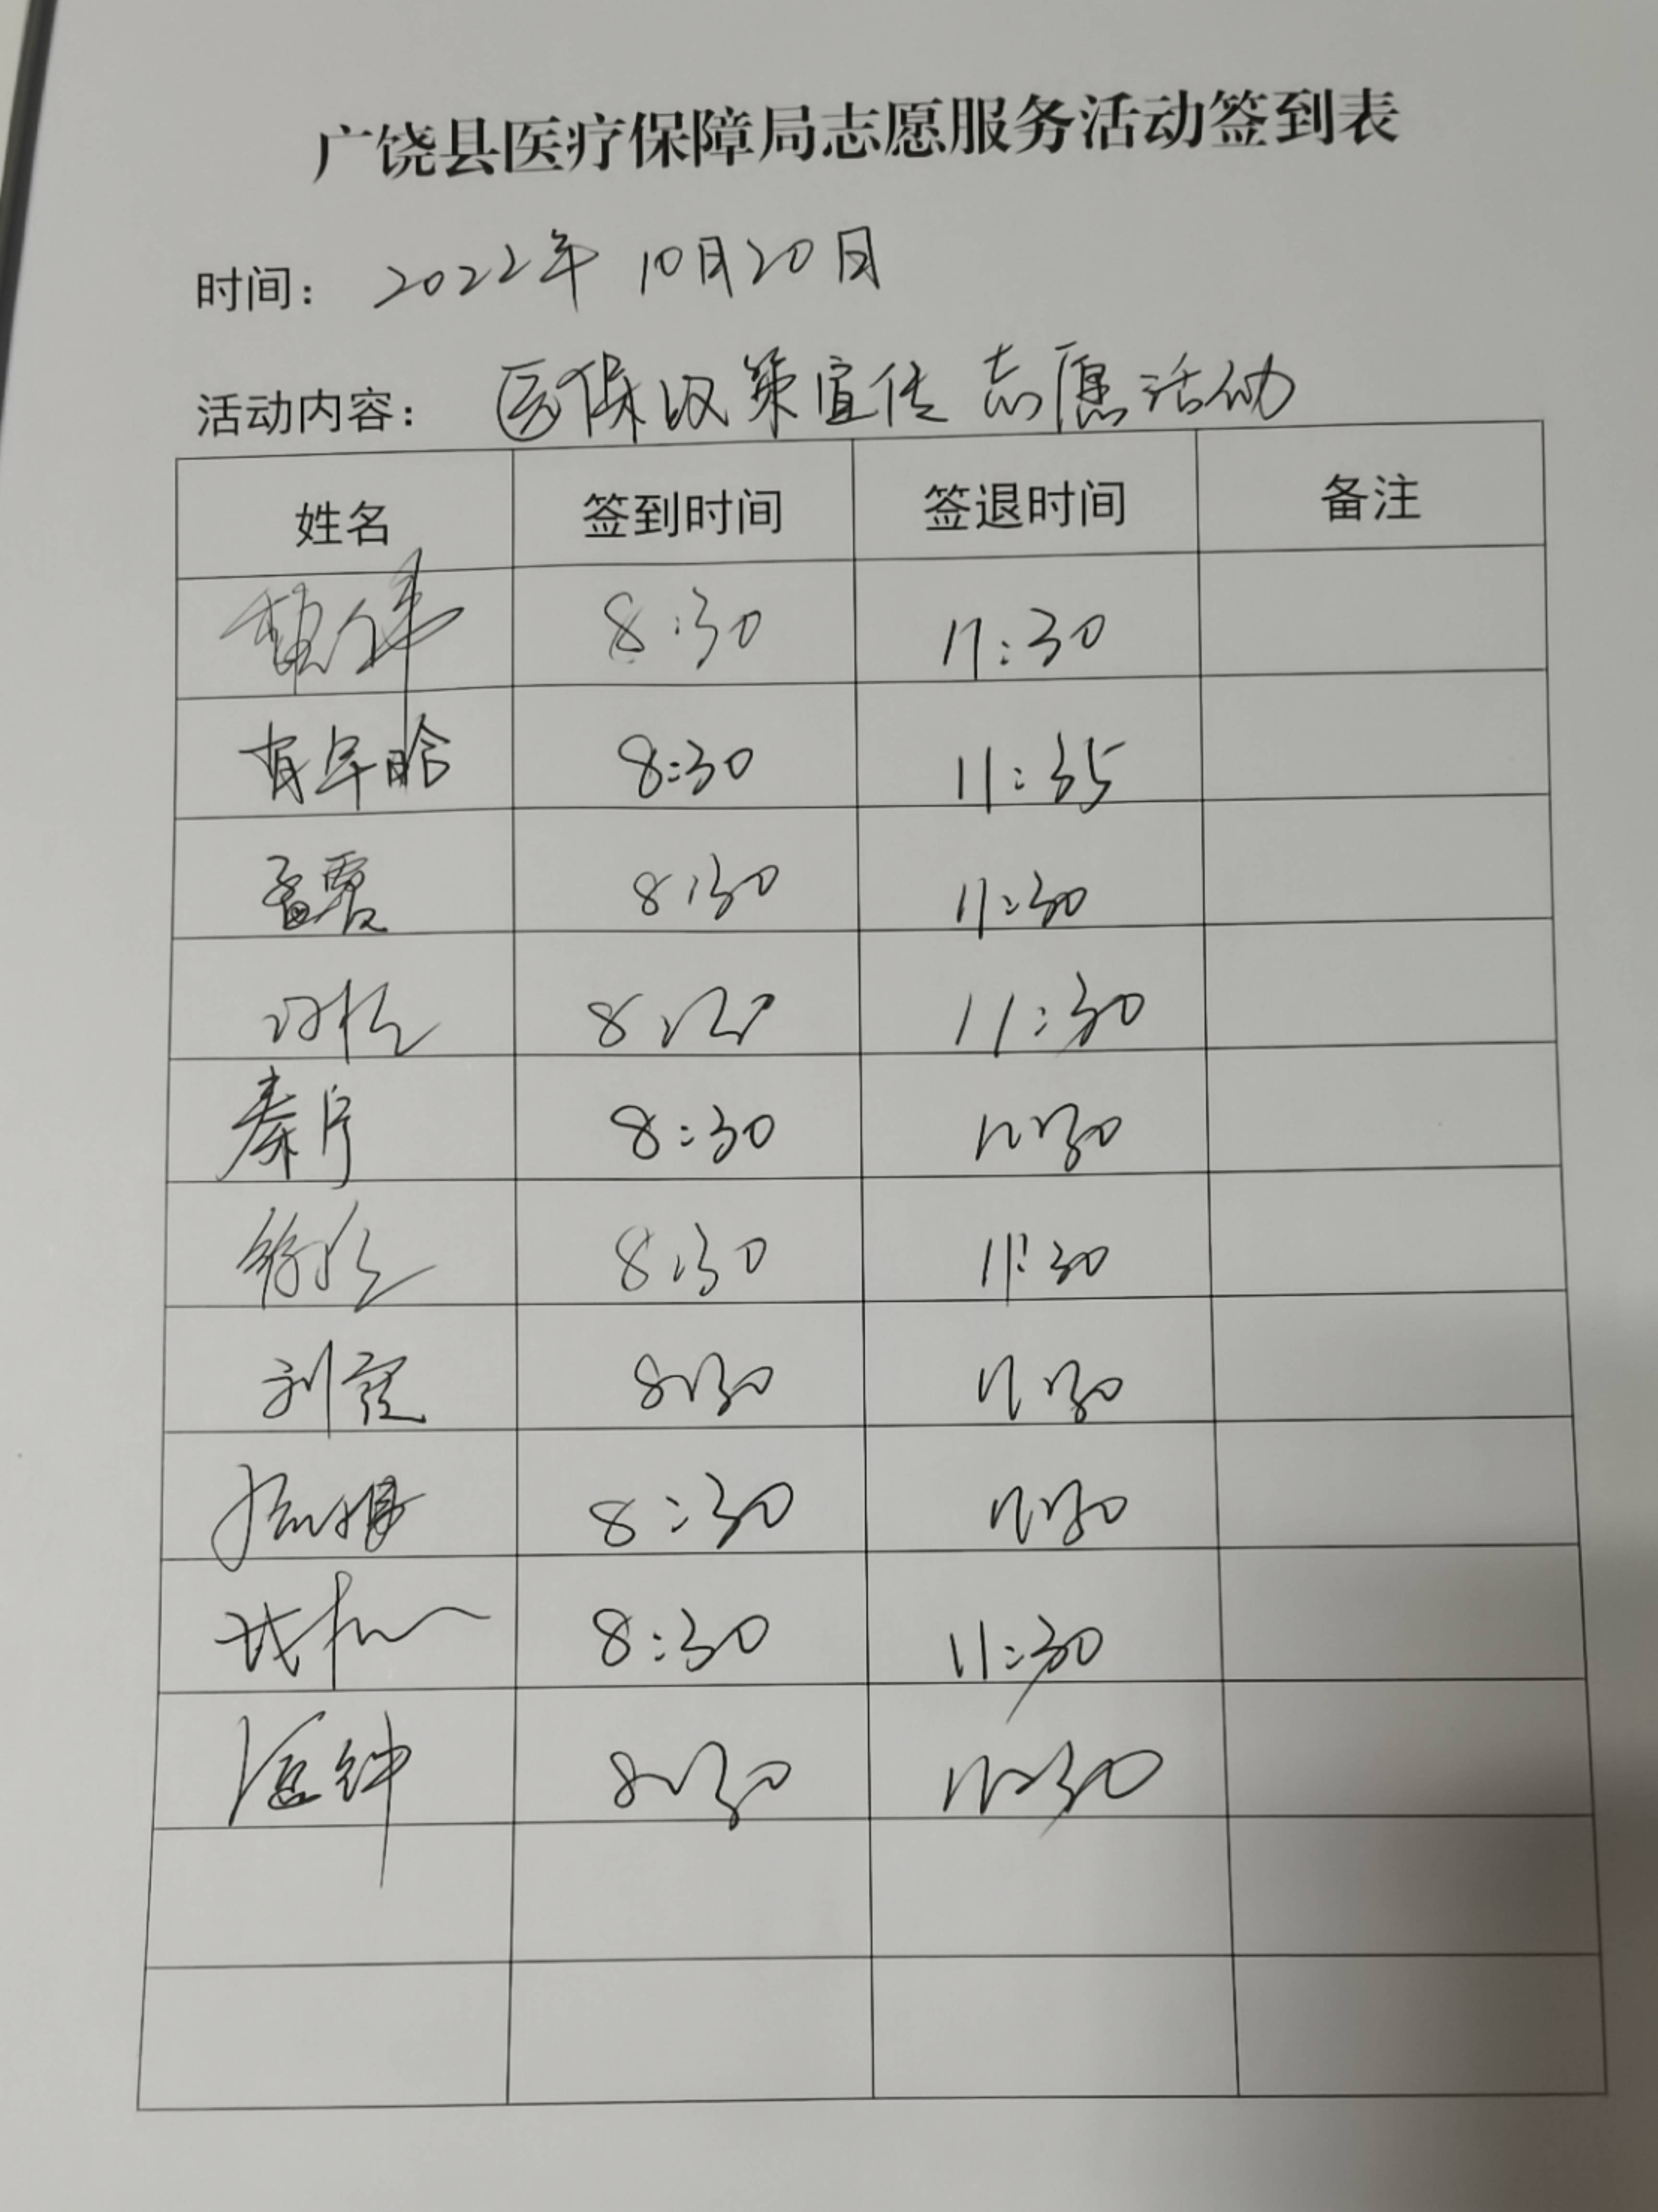 广饶县医疗保障局志愿服务活动签到表
时间： 2022年 10月20日
活动内容： 医保政策宣传志愿活动
姓名 签到时间 签退时间 备注
8:30 11:30
8:30 11:35
孟霞 8:30 11:30
11:30
秦 8:30 11:30
8:30 11:30
刘 8:30 11:30
8:30 11:30
8:30 11:30
8:30 11:30